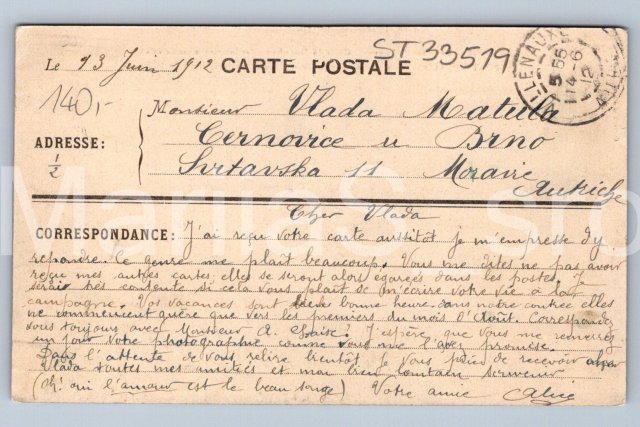 Le 13 Juin 1912 CARTE POSTALE ST 33519
140,-
Monsieur Vlada Matulla
ADRESSE: Cernovice u Brno
1/2 Svitavska 11 Moravie
Autriche
Cher Vlada
CORRESPONDANCE: J'ai reçu votre carte aussitôt je m'empresse d'y
repondre. Le genre me plaît beaucoup. Vous me dites ne pas avoir
reçu mes autres cartes elles se seront alors egarées dans les postes. Je
serais très contente si cela vous plaît de m'écrire votre vie à la
campagne. Vos vacances sont bonne heure dans notre contrée elles
ne commencent guère que vers les premiers du mois d'Août. Correspondez
vous toujours avec Monsieur A. J'espère que vous me remettrez
un jour votre photographie comme vous me l'avez promise.
Dans l'attente de vous relire bientôt je vous prie de recevoir cher
Vlada toutes mes amitiés et mon bien lointain souvenir
(Oh! oui l'amour est le beau songe) Votre amie Alice